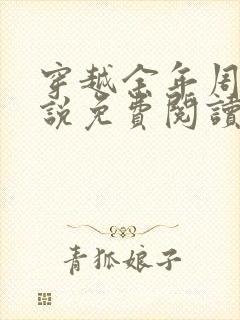 穿越金年周
說免費閱讀
青狐娘子